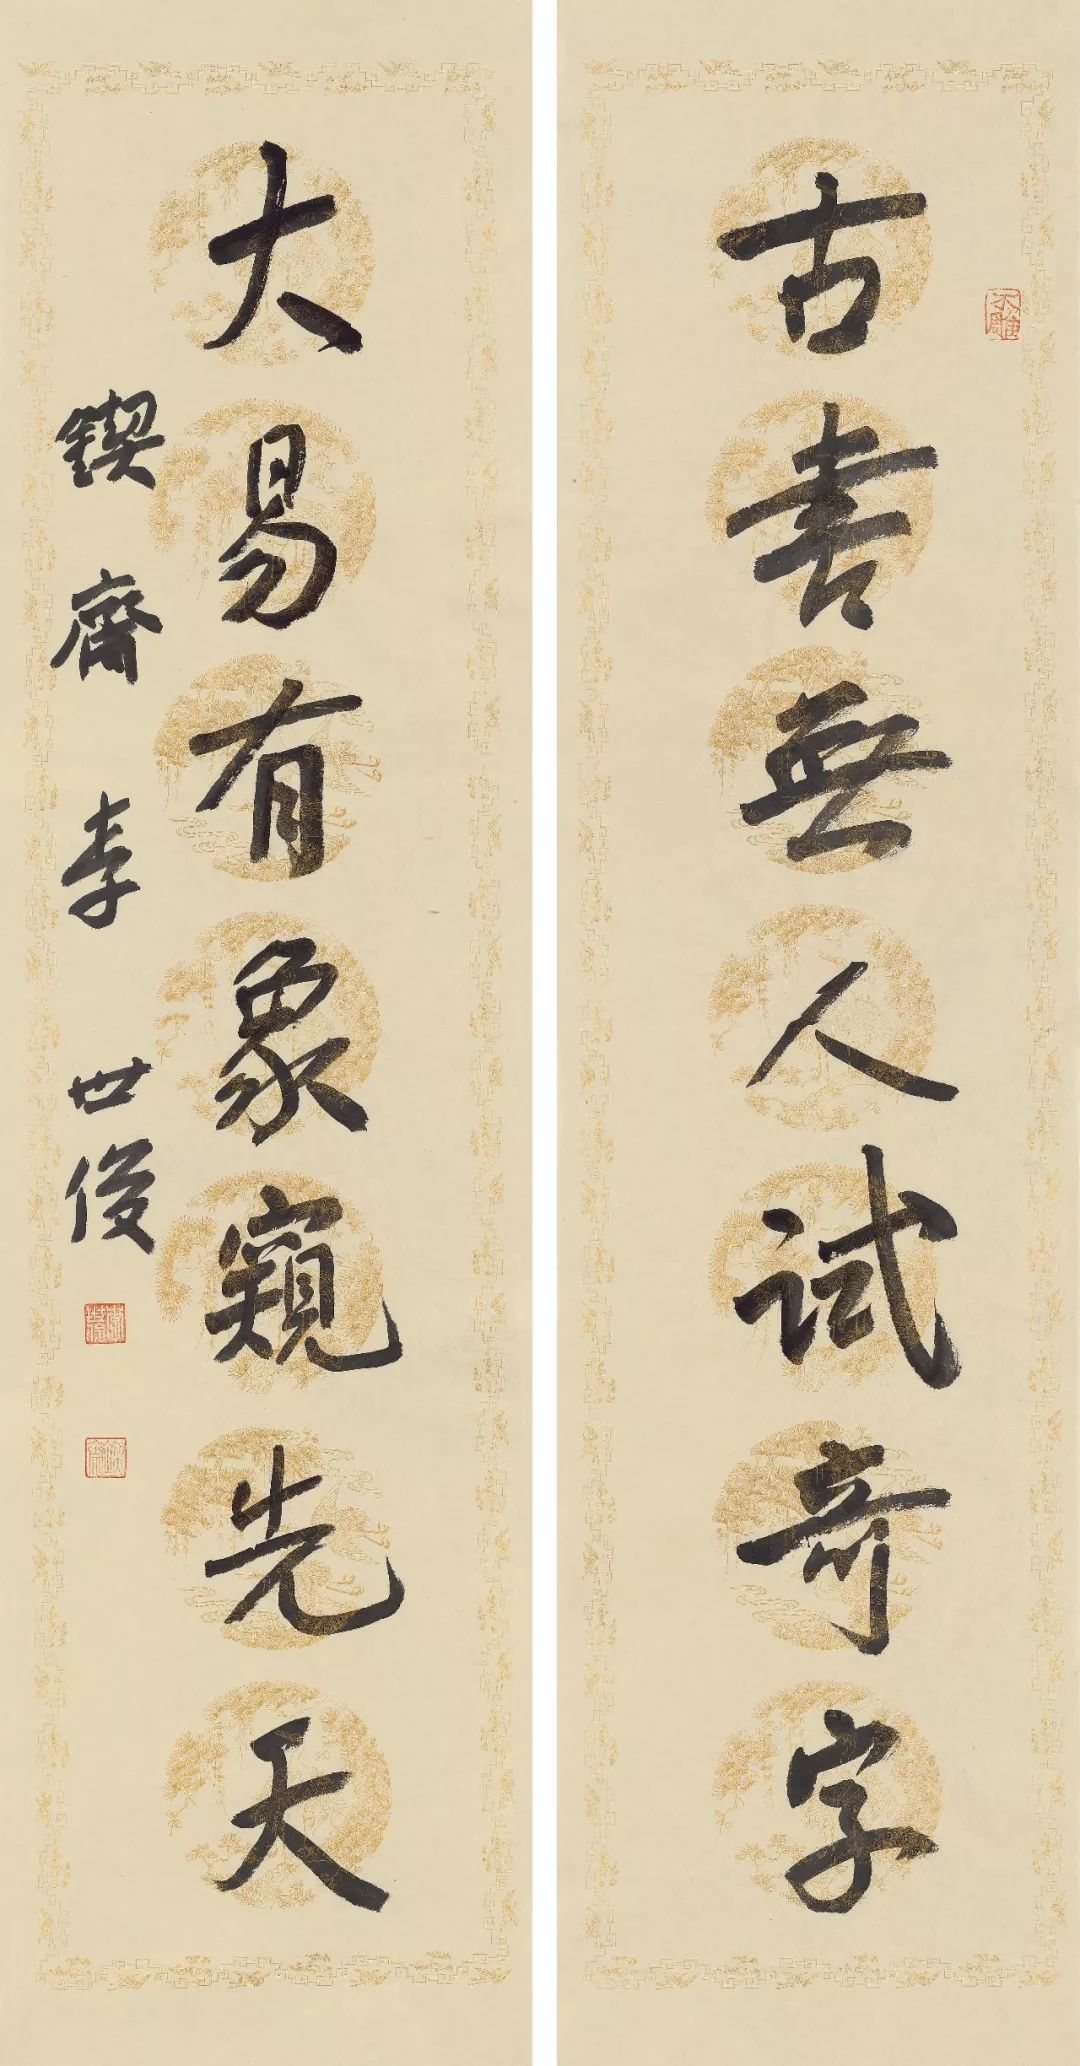 古書無人試奇字
大易有象窺先天
鍥齋李世俊